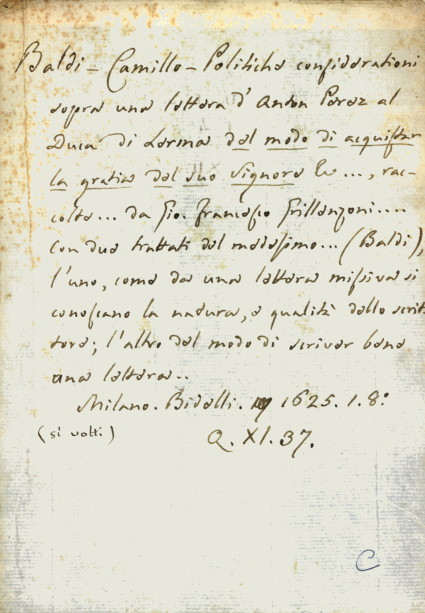 Baldi - Camillo - Politiche considerationi
sopra una lettera d'Anton Perez al
Duca di Lerma del modo di acquistar
la gratia del suo Signore &c..., rac-
colte... da Gio. Francesco Grillenzoni....
con due trattati del medesimo... (Baldi),
l'uno, come da una lettera missiva si
conoscano la natura, e qualità dello scrit-
tore; l'altro del modo di scriver bene
una lettera..
Milano. Bidelli. 1625. 1. 8º
(si volti) Q. XI. 37.
C